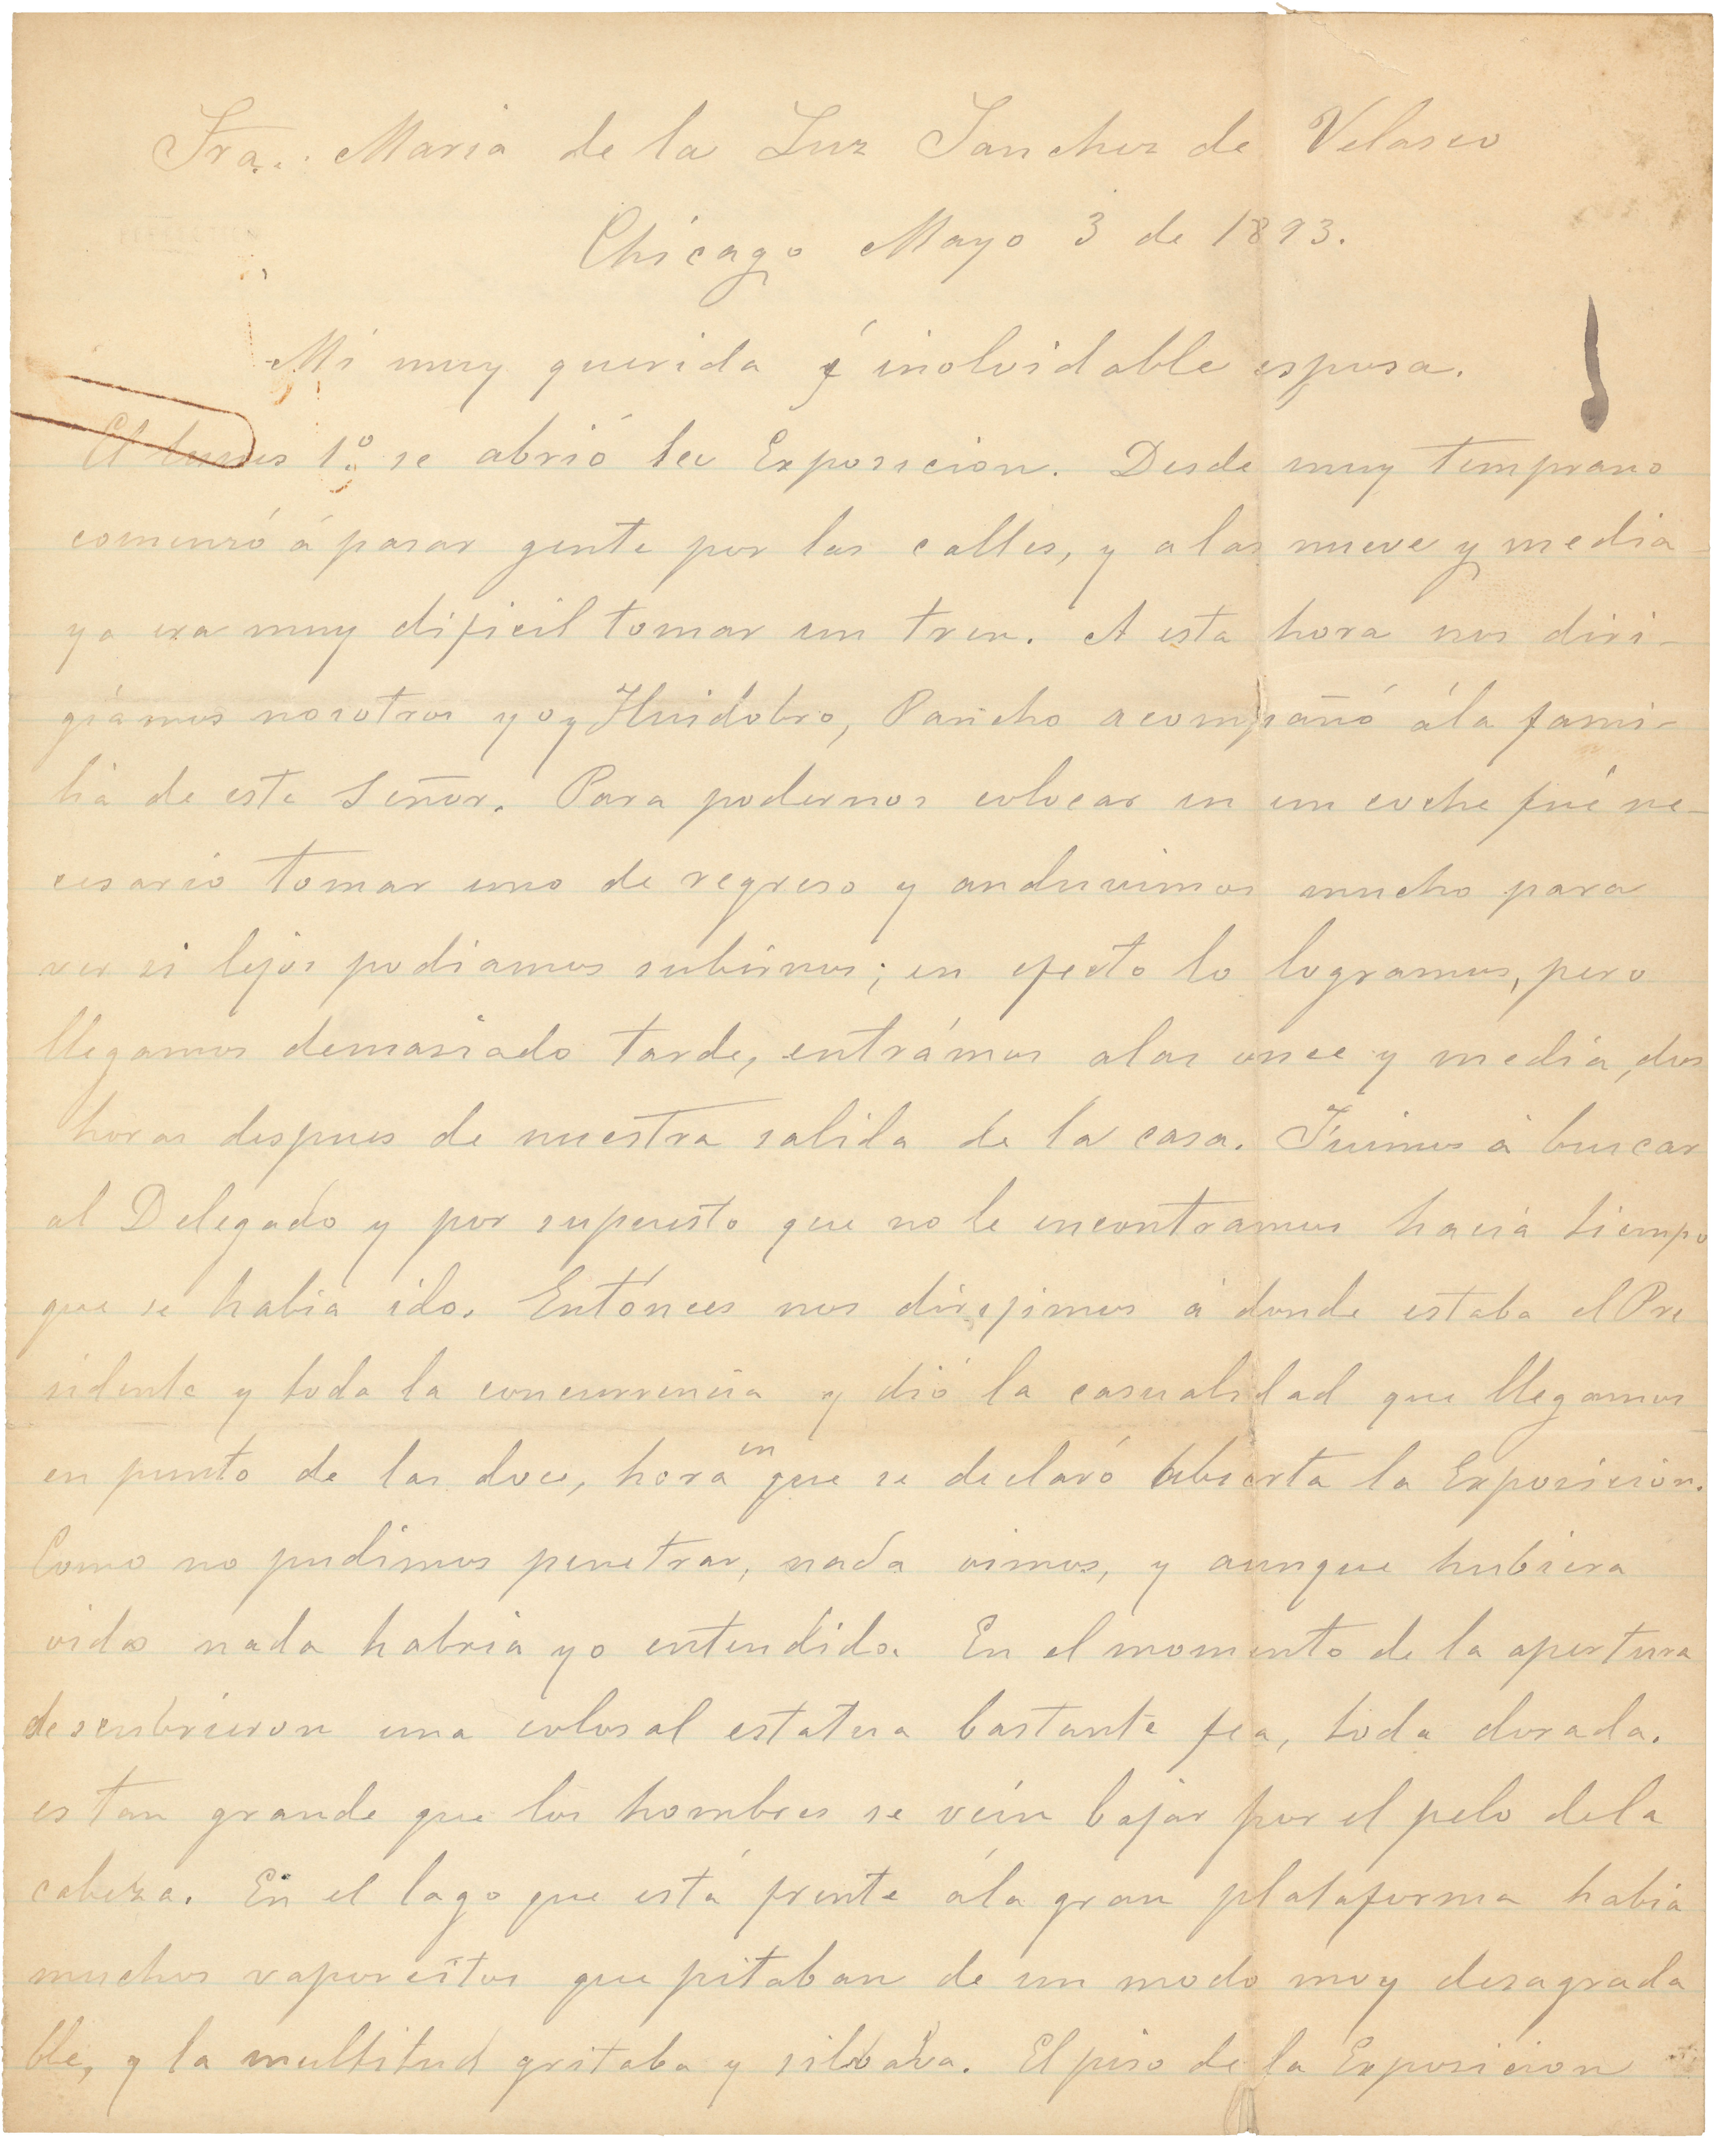 Sra. Maria de la Luz Sanchez de Velasco
Chicago Mayo 3 de 1893.
Mi muy querida é inolvidable esposa.
El lunes 1º. se abrió la Exposicion. Desde muy temprano
comenzó á pasar gente por las calles, y a las nueve y media
ya era muy dificil tomar un tren. A esta hora nos diri-
giamos nosotros yo y Huidobro, Pancho acompañó á la fami-
lia de este Señor. Para podernos colocar en un coche fué ne-
cesario tomar uno de regreso y anduvimos mucho para
ver si lejos podiamos subirnos; en efecto lo logramos, pero
llegamos demasiado tarde, entrámos a las once y media, dos
horas despues de nuestra salida de la casa. Fuimos á buscar
al Delegado y por supuesto que no le encontramos hacia tiempo
que se habia ido. Entónces nos dirijimos á donde estaba el Pre
sidente y toda la concurrencia y dió la casualidad que llegamos
en punto de las doce, hora en que se declaró abierta la Exposicion.
Como no pudimos penetrar, nada vimos, y aunque hubiera
oido nada habria yo entendido. En el momento de la apertura
descubrieron una colosal estatua bastante fea, toda dorada.
es tan grande que los hombres se véin bajar por el pelo de la
cabeza. En el lago que está frente á la gran plataforma habia
muchos vaporcitos que pitaban de un modo muy desagrada
ble, y la multitud gritaba y silbaba. El piso de la Exposicion